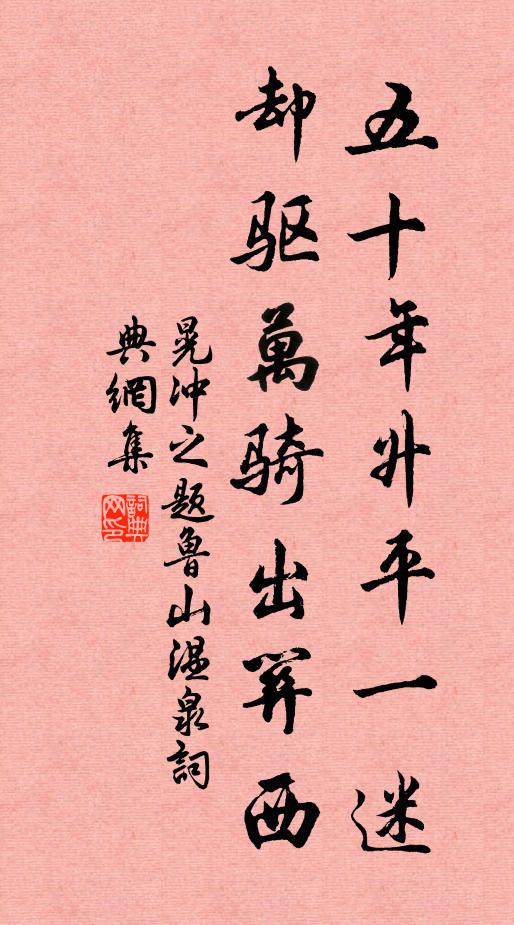 五十年升平一迷
却驱萬骑出関西
晁冲之题魯山温泉詞
典網集
詞典网印